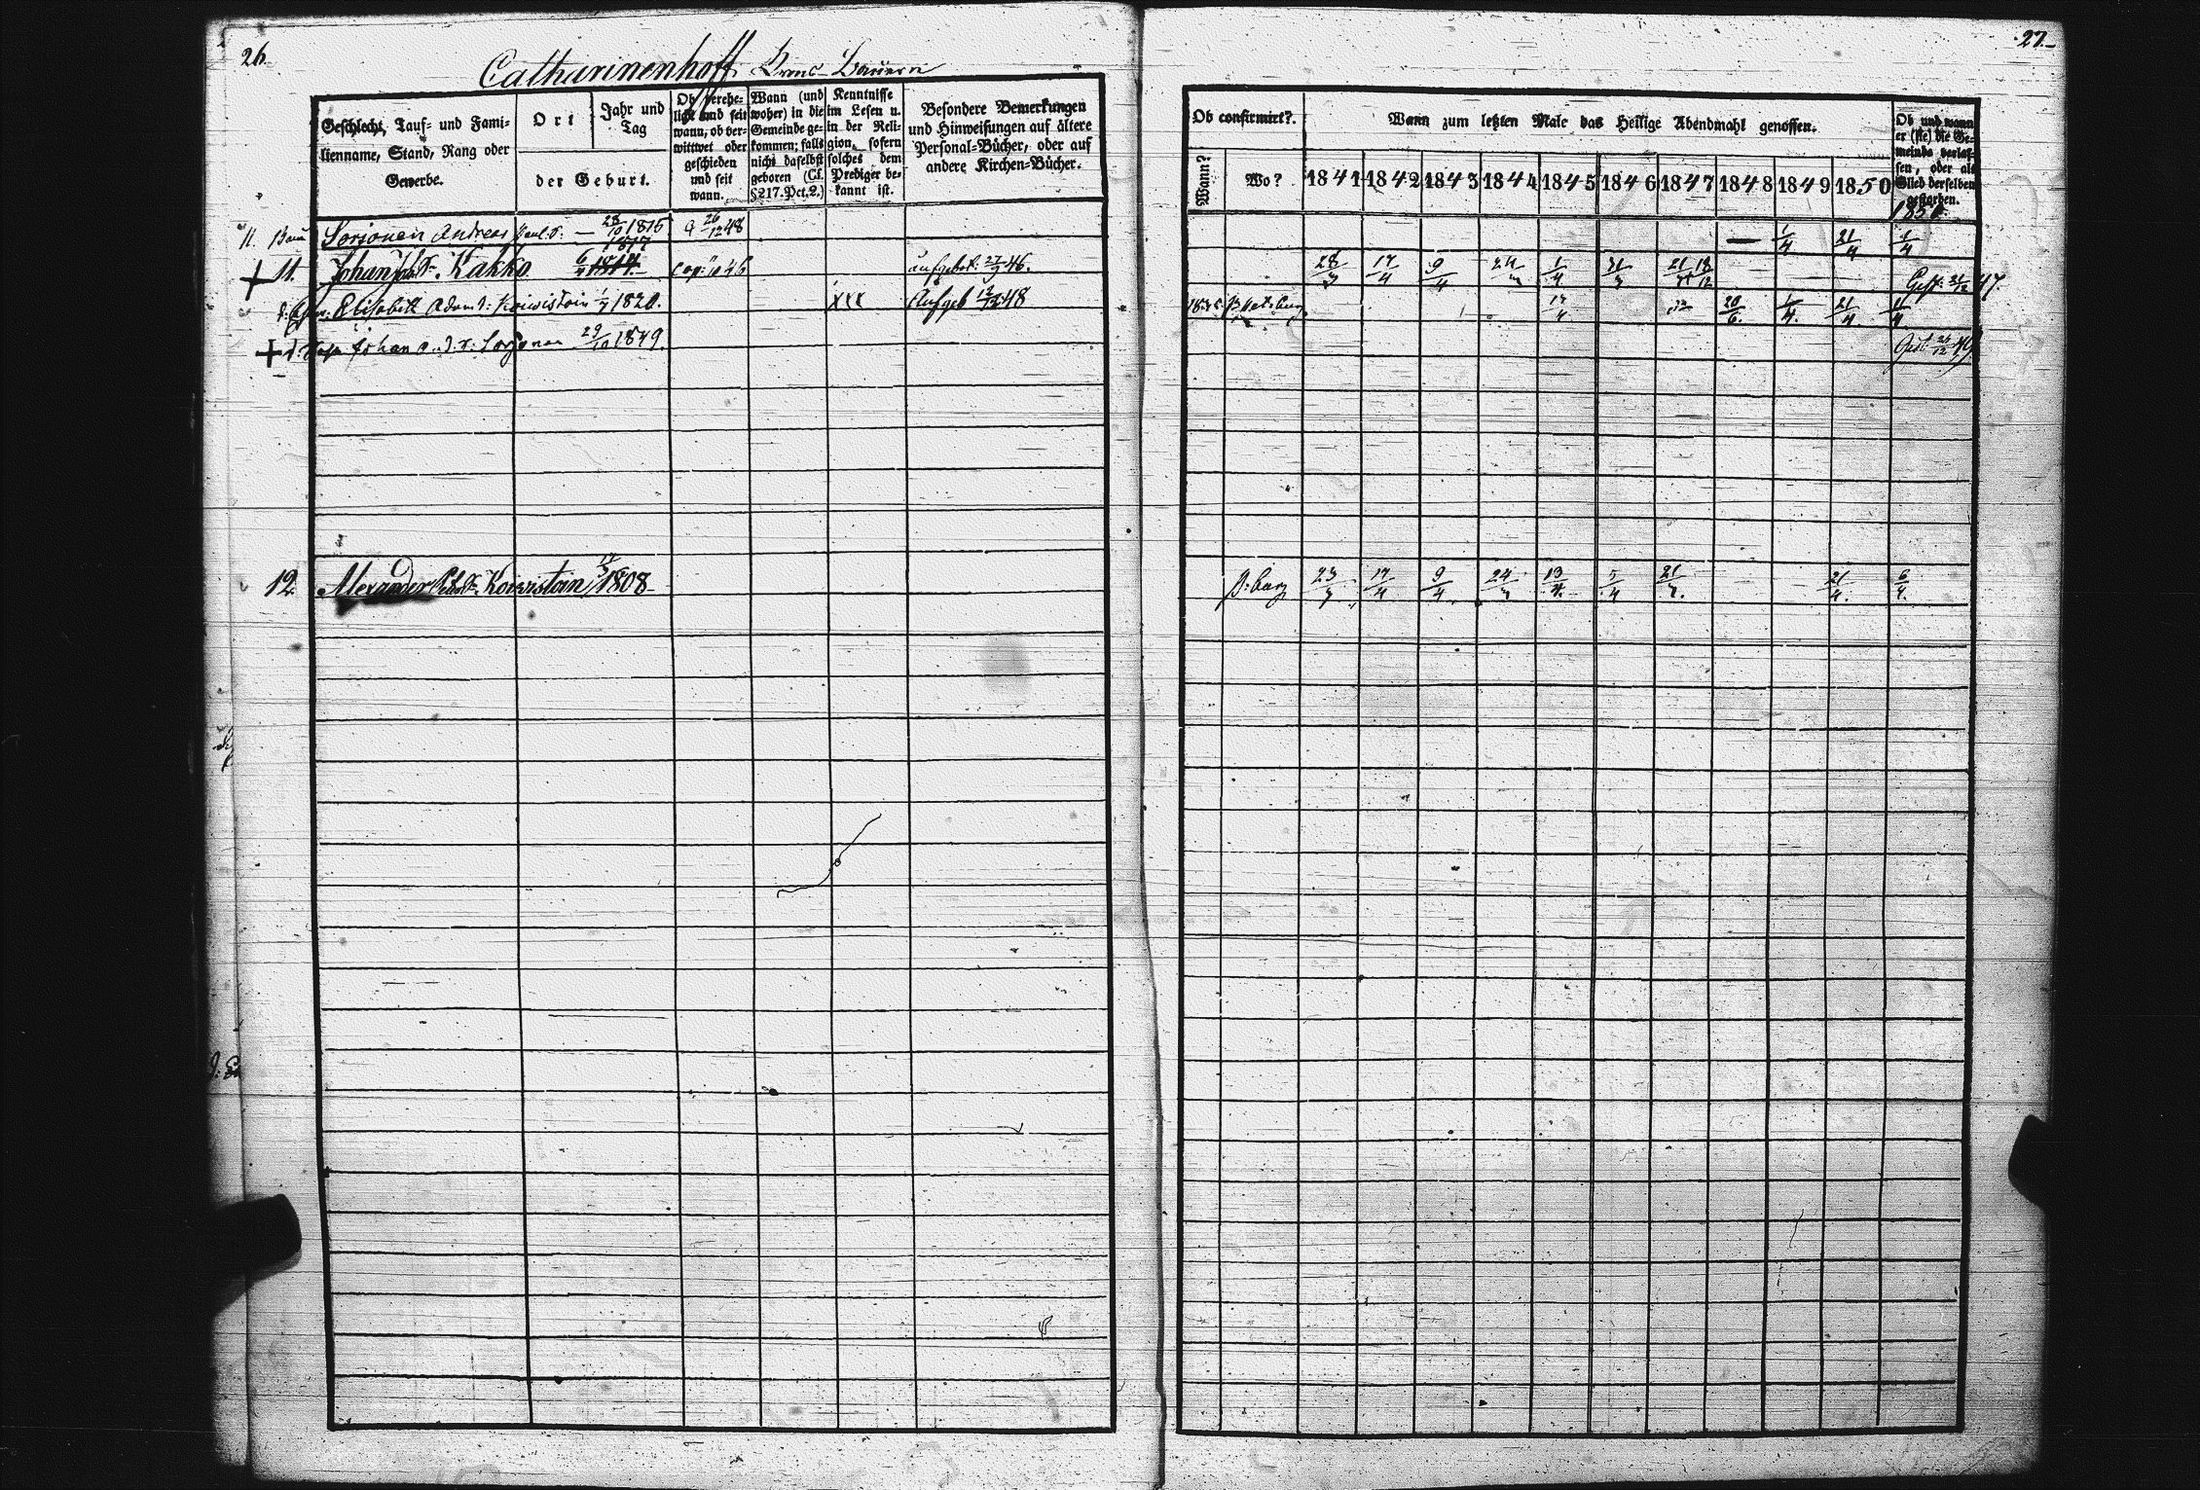 26.
Catharinenhoff. Bauern
Geschlecht, Tauf- und Fami-
lienname, Stand, Rang oder
Gewerbe.
Ort
Jahr und
Tag
der Geburt.
Ob verehe-
licht und seit
wann, ob ver-
wittwet oder
geschieden
und seit
wann.
Wann (und
woher) in die
Gemeinde ge-
kommen; falls
nicht daselbst
geboren (Cf.
§217. Pct. 2.)
Kenntnisse
im Lesen u.
in der Reli-
gion, sofern
solches dem
Prediger be-
kannt ist.
Besondere Bemerkungen
und Hinweisungen auf ältere
Personal-Bücher, oder auf
andere Kirchen-Bücher.
11. Sorjonen Andreas Paul. S. — 28/10 1816 26/12 48
1817
11. Johan Kakko 6/4 1814. Cop: 46 aufgebot: 27/9 46.
Elisabeth Adam t. Kowistain 1/7 1820. XXX Aufgeb 12/12 48
Johan And. S. Sorjonen 29/10 1849.
12. Alexander Kowistain 1808
27.
Ob confirmirt?
Wann?
Wo?
Wann zum letzten Male das Heilige Abendmahl genossen.
1841 1842 1843 1844 1845 1846 1847 1848 1849 1850
Ob und wann
er (sie) die Ge-
meinde verlas-
sen, oder als
Glied derselben
gestorben.
1851.
— 1/4 21/4 1/4
28/3 17/4 9/4 24/3 1/4 31/3 21/4 18/12 Gest: 21/12 47.
17/4 20/6. 1/4. 21/4. 1/4
Gest: 24/12 49
23/3 17/4 9/4. 24/3 13/4. 5/4 21/3. 21/4. 6/4.